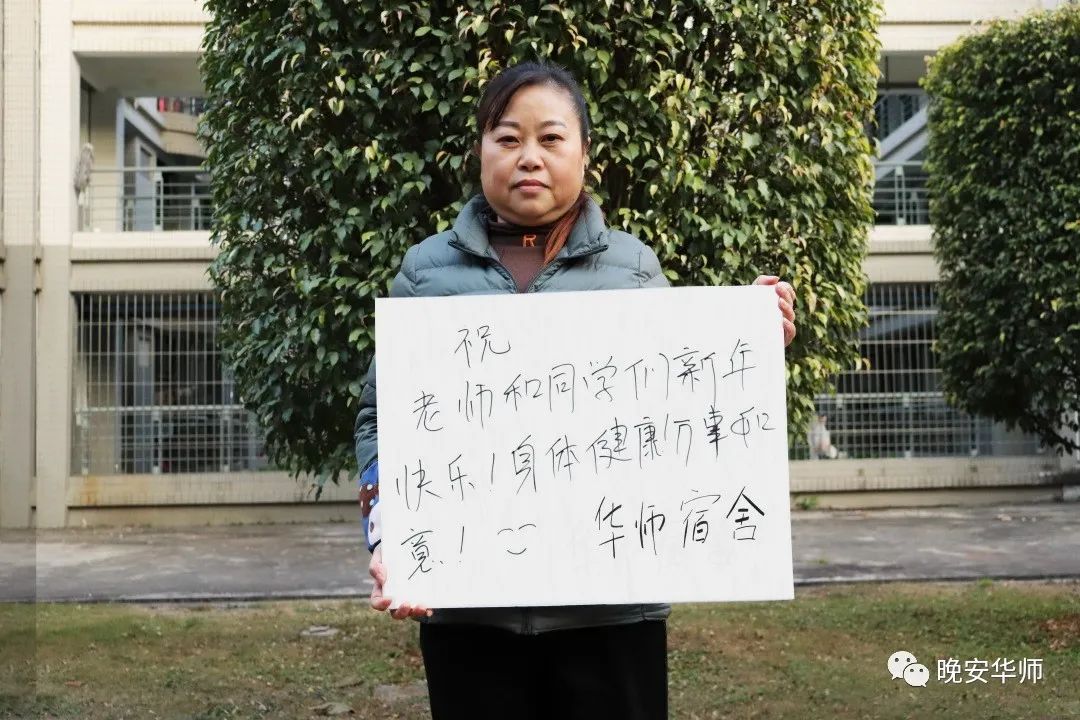 R
祝
老师和同学们新年
快乐！身体健康万事如
意！
华师宿舍
晚安华师